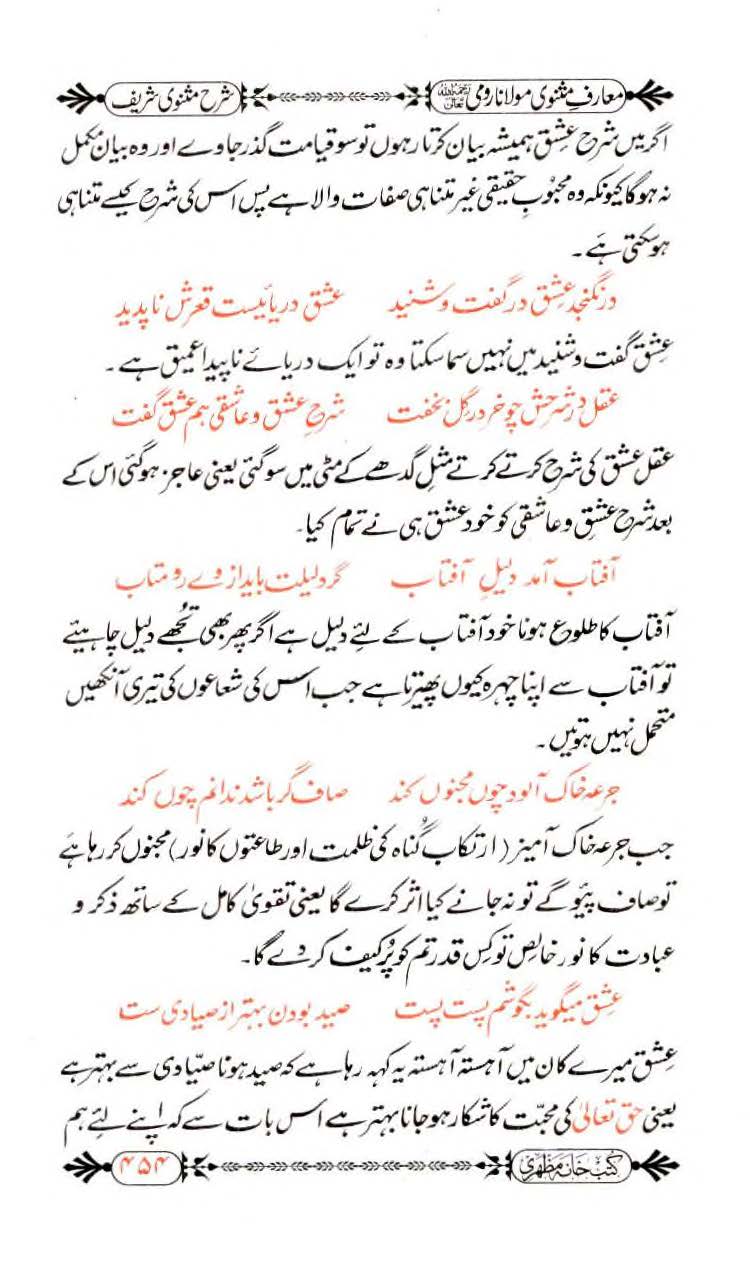 معارفِ مثنوی مولانا رومی رحمہ اللہ تعالیٰ شرح مثنوی شریف
اگر میں شرحِ عشق ہمیشہ بیان کرتا رہوں تو سو قیامت گذر جاوے اور وہ بیان مکمل
نہ ہوگا کیونکہ وہ محبوبِ حقیقی غیر متناہی صفات والا ہے پس اس کی شرح کیسے متناہی
ہوسکتی ہے۔
در نگنجد عشق در گفت و شنید عشق دریائیست قعرش ناپدید
عشق گفت و شنید میں نہیں سما سکتا وہ تو ایک دریائے ناپیدا عمیق ہے۔
عقل در شرحش چو خر در گِل بخفت شرحِ عشق و عاشقی ہم عشق گفت
عقل عشق کی شرح کرتے کرتے مثلِ گدھے کے مٹی میں سوگئی یعنی عاجز ہوگئی اس کے
بعد شرحِ عشق و عاشقی کو خود عشق ہی نے تمام کیا۔
آفتاب آمد دلیلِ آفتاب گر دلیلت باید از وے رو متاب
آفتاب کا طلوع ہونا خود آفتاب کے لئے دلیل ہے اگر پھر بھی تُجھے دلیل چاہیئے
تو آفتاب سے اپنا چہرہ کیوں پھیرتا ہے جب اس کی شعاعوں کی تیری آنکھیں
متحمل نہیں ہوتیں۔
جرعہ خاک آلود چوں مجنوں کند صاف گر باشد ندانم چوں کند
جب جرعہ خاک آمیز (ارتکابِ گُناہ کی ظلمت اور طاعتوں کا نور) مجنوں کر رہا ہے
تو صاف پئیو گے تو نہ جانے کیا اثر کرے گا یعنی تقویٰ کامل کے ساتھ ذکر و
عبادت کا نور خالص تو کس قدر تم کو پُرکیف کر دے گا۔
عشق میگوید بگوشم پست پست صید بودن بہتر از صیادی ست
عشق میرے کان میں آہستہ آہستہ یہ کہہ رہا ہے کہ صید ہونا صیّادی سے بہتر ہے
یعنی حق تعالیٰ کی محبّت کا شکار ہوجانا بہتر ہے اس بات سے کہ اپنے لئے ہم
کُتب خانہ مظہری ۴۵۴